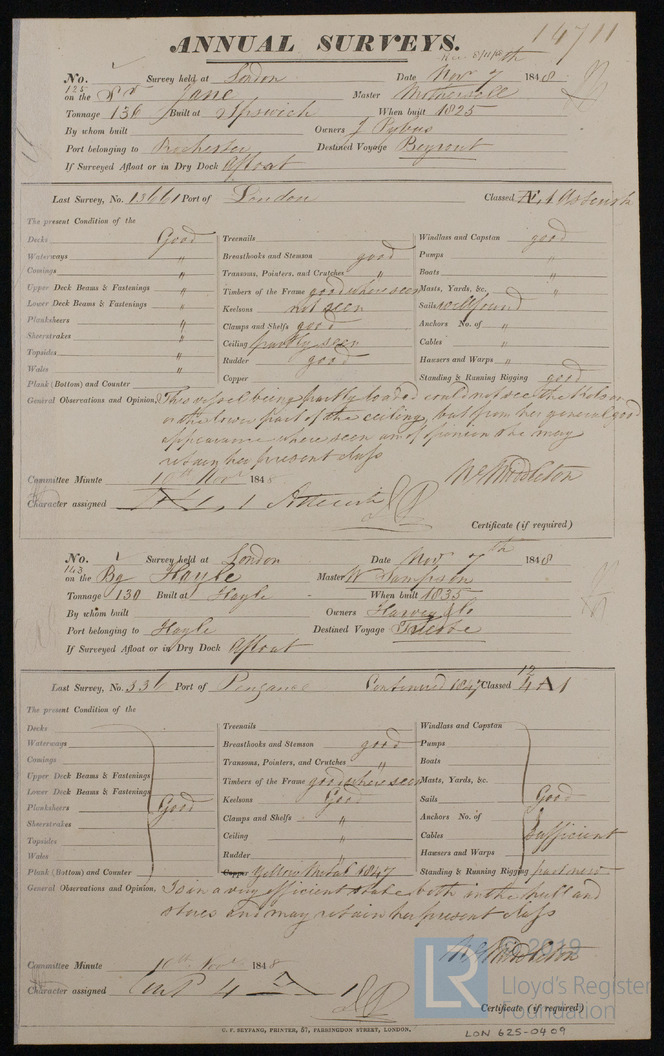 14711
ANNUAL SURVEYS.
Rec 8/11/48
No. Survey held at London Date Nov 7th 1848
125
on the Sr Jane Master Mothersole
Tonnage 136 Built at Ipswich When built 1825
By whom built Owners J Pybus
Port belonging to Rochester Destined Voyage Beyrout
If Surveyed Afloat or in Dry Dock Afloat
Last Survey, No. 13661 Port of London Classed Æ 1 Asterisk
The present Condition of the
Decks Good Treenails Windlass and Capstan good
Waterways " Breasthooks and Stemson good Pumps "
Comings " Transoms, Pointers, and Crutches " Boats "
Upper Deck Beams & Fastenings " Timbers of the Frame good where seen Masts, Yards, &c. "
Lower Deck Beams & Fastenings " Keelsons not seen Sails well found
Planksheers " Clamps and Shelfs good Anchors No. of "
Sheerstrakes " Ceiling partly seen Cables "
Topsides " Rudder good Hawsers and Warps "
Wales " Copper Standing & Running Rigging good
Plank (Bottom) and Counter
General Observations and Opinion, This vessel being partly loaded could not see the Kelson
or the lower part of the ceiling, but from her general good
appearance where seen am of opinion she may
retain her present class
Wm Middleton
Committee Minute 10th Novr 1848
Character assigned Æ 1 Asterisk
Certificate (if required)
No. Survey held at London Date Nov 7th 1848
143
on the Bg Hayle Master W Sampson
Tonnage 130 Built at Hayle When built 1835
By whom built Owners Harvey & Co
Port belonging to Hayle Destined Voyage Trieste
If Surveyed Afloat or in Dry Dock Afloat
Last Survey, No. 336 Port of Penzance Continued 1847 Classed 12/4 A 1
The present Condition of the
Decks Treenails Windlass and Capstan
Waterways Breasthooks and Stemson good Pumps
Comings Transoms, Pointers, and Crutches " Boats
Upper Deck Beams & Fastenings Timbers of the Frame good where seen Masts, Yards, &c.
Lower Deck Beams & Fastenings Keelsons Good Sails Good
Planksheers Good Clamps and Shelfs " Anchors No. of
Sheerstrakes Ceiling " Cables Sufficient
Topsides Rudder " Hawsers and Warps
Wales Copper Yellow Metal 1847 Standing & Running Rigging part new
Plank (Bottom) and Counter
General Observations and Opinion, Is in a very efficient state both in the hull and
stores and may retain her present class
Wm Middleton
Committee Minute 10th Novr 1848
Character assigned 4 A 1
Certificate (if required)
U. F. BEYFANG, PRINTER, 57, FARRINGDON STREET, LONDON.
LON 625-0409
LR © 2019
Lloyd's Register
Foundation